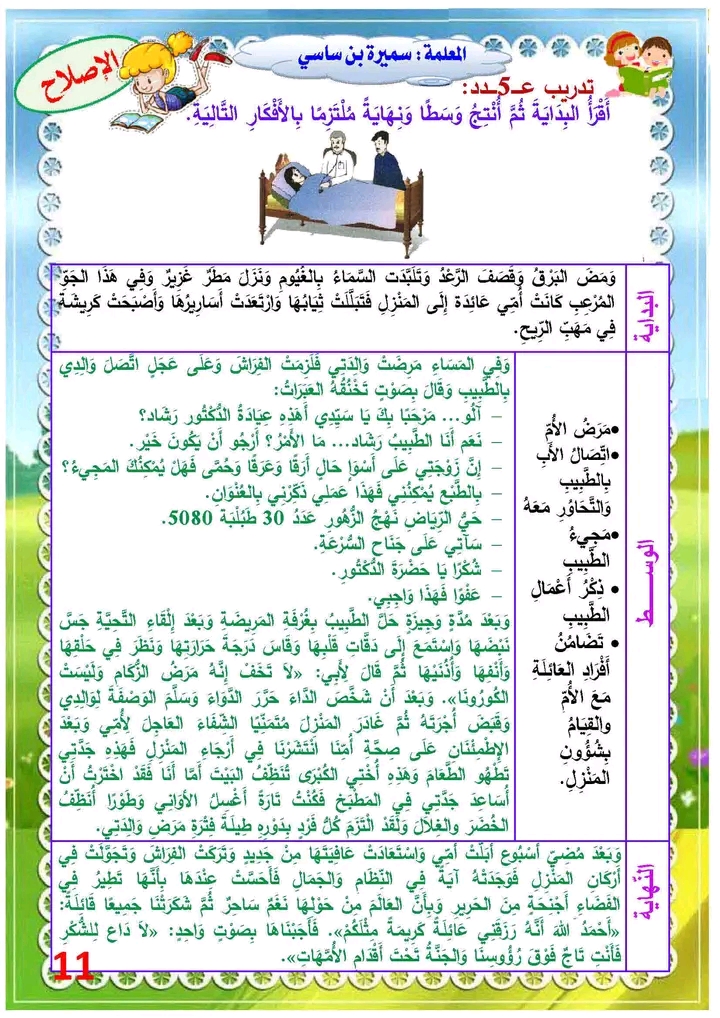 الإصلاح
المعلمة : سميرة بن ساسي
تدريب عـ5ـدد:
أَقْرَأُ البِدَايَةَ ثُمَّ أُنْتِجُ وَسَطًا وَنِهَايَةً مُلْتَزِمًا بِالأَفْكَارِ التَّالِيَةِ.
البداية
وَمَضَ البَرْقُ وَقَصَفَ الرَّعْدُ وَتَلَبَّدَت السَّمَاءُ بِالغُيُومِ وَنَزَلَ مَطَرٌ غَزِيرٌ وَفِي هَذَا الجَوِّ
المُرْعِبِ كَانَتْ أُمِّي عَائِدَة إِلَى المَنْزِلِ فَتَبَلَّلَتْ ثِيَابُهَا وَارْتَعَدَتْ أَسَارِيرُهَا وَأَصْبَحَتْ كَرِيشَةً
فِي مَهَبِّ الرِّيحِ.
الوسط
•مَرَضُ الأُمِّ
•اتِّصَالُ الأَبِ
بِالطَّبِيبِ
وَالتَّحَاوُرِ مَعَهُ
•مَجِيءُ
الطَّبِيبِ
• ذِكْرُ أَعْمَالِ
الطَّبِيبِ
• تَضَامُنُ
أَفْرَادِ العَائِلَةِ
مَعَ الأُمِّ
والقِيَامُ
بِشُؤُونِ
المَنْزِلِ.
وَفِي المَسَاءِ مَرِضَتْ وَالِدَتِي فَلَزِمَتْ الفِرَاشَ وَعَلَى عَجَلٍ اتَّصَلَ وَالِدِي
بِالطَّبِيبِ وَقَالَ بِصَوْتٍ تَخْنُقُهُ العَبَرَاتُ:
– آلُو... مَرْحَبًا بِكَ يَا سَيِّدِي أَهَذِهِ عِيَادَةُ الدُّكْتُورِ رَشَاد؟
– نَعَم أَنَا الطَّبِيبُ رَشَاد... مَا الأَمْرُ؟ أَرْجُو أَنْ يَكُونَ خَيْر.
– إِنَّ زَوْجَتِي عَلَى أَسْوَإِ حَالٍ أَرَقًا وَعَرَقًا وَحُمَّى فَهَلْ يُمْكِنُكَ المَجِيءُ؟
– بِالطَّبْعِ يُمْكِنُنِي فَهَذَا عَمَلِي ذَكِّرْنِي بِالعُنْوَانِ.
– حَيُّ الرِّيَاضِ نَهْجُ الزُّهُورِ عَدَدُ 30 طَبُلْبَة 5080.
– سَآتِي عَلَى جَنَاحِ السُّرْعَةِ.
– شُكْرًا يَا حَضْرَةَ الدُّكْتُورِ.
– عَفْوًا فَهَذَا وَاجِبِي.
وَبَعْدَ مُدَّةٍ وَجِيزَةٍ حَلَّ الطَّبِيبُ بِغُرْفَةِ المَرِيضَةِ وَبَعْدَ إِلْقَاءِ التَّحِيَّةِ جَسَّ
نَبْضَهَا وَاسْتَمَعَ إِلَى دَقَّاتِ قَلْبِهَا وَقَاسَ دَرَجَةَ حَرَارَتِهَا وَنَظَرَ فِي حَلْقِهَا
وَأَنْفِهَا وَأُذُنَيْهَا ثُمَّ قَالَ لِأَبِي: «لاَ تَخَفْ إِنَّهُ مَرَضُ الزُّكَامِ وَلَيْسَتْ
الكُورُونَا». وَبَعْدَ أَنْ شَخَّصَ الدَّاءَ حَرَّرَ الدَّوَاءَ وَسَلَّمَ الوَصْفَةَ لِوَالِدِي
وَقَبَضَ أُجْرَتَهُ ثُمَّ غَادَرَ المَنْزِلَ مُتَمَنِّيًا الشِّفَاءَ العَاجِلَ لِأُمِّي وَبَعْدَ
الإِطْمِئْنَانِ عَلَى صِحَّةِ أُمِّنَا انْتَشَرْنَا فِي أَرْجَاءِ المَنْزِلِ فَهَذِهِ جَدَّتِي
تَطْهُو الطَّعَامَ وَهَذِهِ أُخْتِي الكُبْرَى تُنَظِّفُ البَيْتَ أَمَّا أَنَا فَقَدْ اخْتَرْتُ أَنْ
أُسَاعِدَ جَدَّتِي فِي المَطْبَخِ فَكُنْتُ تَارَةً أَغْسِلُ الأَوَانِي وَطَوْرًا أُنَظِّفُ
الخُضَرَ والغِلَالَ وَلَقَدْ الْتَزَمَ كُلُّ فَرْدٍ بِدَوْرِهِ طِيلَةَ فِتْرَةِ مَرَضِ وَالِدَتِي.
النّهاية
وَبَعْدَ مُضِيِّ أُسْبُوعٍ أَبَلَّتْ أُمِّي وَاسْتَعَادَتْ عَافِيَتَهَا مِنْ جَدِيدٍ وَتَرَكَتْ الفِرَاشَ وَتَجَوَّلَتْ فِي
أَرْكَانِ المَنْزِلِ فَوَجَدَتْهُ آيَةً فِي النِّظَامِ وَالجَمَالِ فَأَحَسَّتْ عِنْدَهَا بِأَنَّهَا تَطِيرُ فِي
الفَضَاءِ بِأَجْنِحَةٍ مِنَ الحَرِيرِ وَبِأَنَّ العَالَمَ مِنْ حَوْلِهَا نَغَمٌ سَاحِرٌ ثُمَّ شَكَرَتْنَا جَمِيعًا قَائِلَةً:
«أَحْمَدُ اللهَ أَنَّهُ رَزَقَنِي عَائِلَةً كَرِيمَةً مِثْلَكُمْ». فَأَجَبْنَاهَا بِصَوْتٍ وَاحِدٍ: «لاَ دَاعِ لِلشُّكْرِ
فَأَنْتِ تَاجٌ فَوْقَ رُؤُوسِنَا وَالجَنَّةُ تَحْتَ أَقْدَامِ الأُمَّهَاتِ».
11